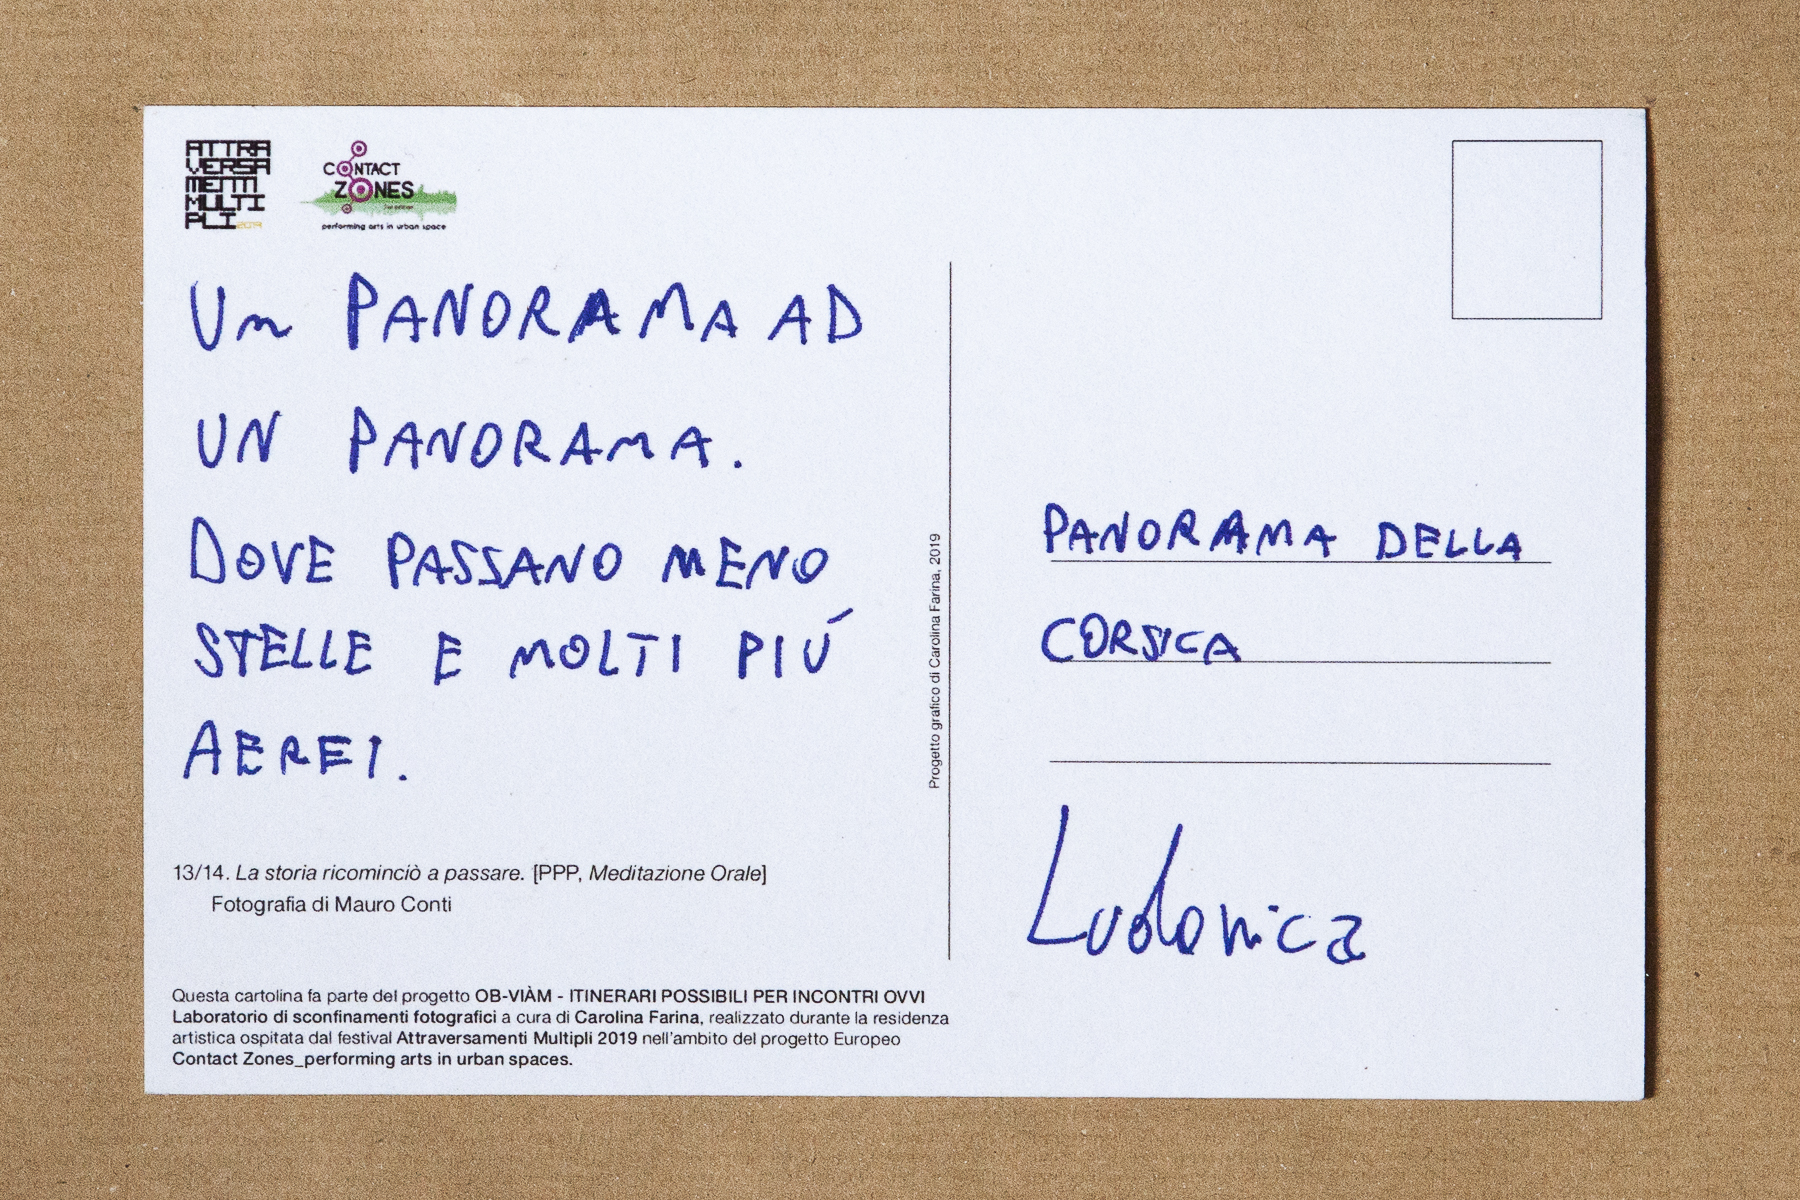 ATTRA
VERSA
MENTI
MULTI
PLI 2019
CONTACT
ZONES
performing arts in urban space
Un PANORAMA AD
UN PANORAMA.
DOVE PASSANO MENO
STELLE E MOLTI PIÚ
AEREI.
13/14. La storia ricominciò a passare. [PPP, Meditazione Orale]
Fotografia di Mauro Conti
Questa cartolina fa parte del progetto OB-VIÀM - ITINERARI POSSIBILI PER INCONTRI OVVI
Laboratorio di sconfinamenti fotografici a cura di Carolina Farina, realizzato durante la residenza
artistica ospitata dal festival Attraversamenti Multipli 2019 nell'ambito del progetto Europeo
Contact Zones_performing arts in urban spaces.
Progetto grafico di Carolina Farina, 2019
PANORAMA DELLA
CORSICA
Ludovica